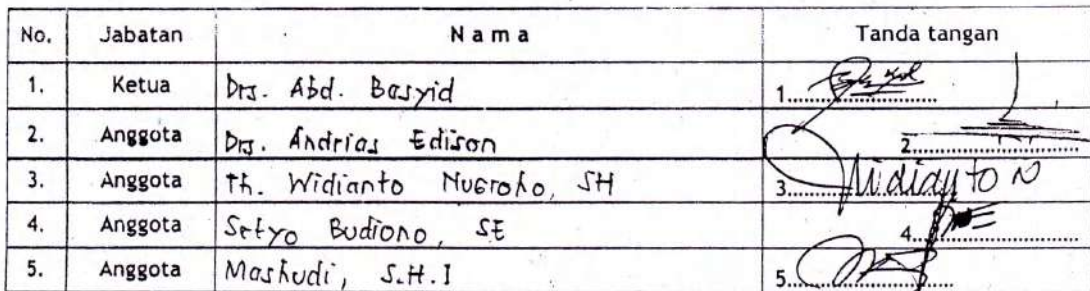 No. Jabatan Nama Tanda tangan
1. Ketua Drs. Abd. Basyid 1.
2. Anggota Drs. Andrias Edison 2.
3. Anggota Th. Widianto Nugroho, SH 3. Widianto N
4. Anggota Setyo Budiono, SE 4.
5. Anggota Mashudi, S.H.I 5.